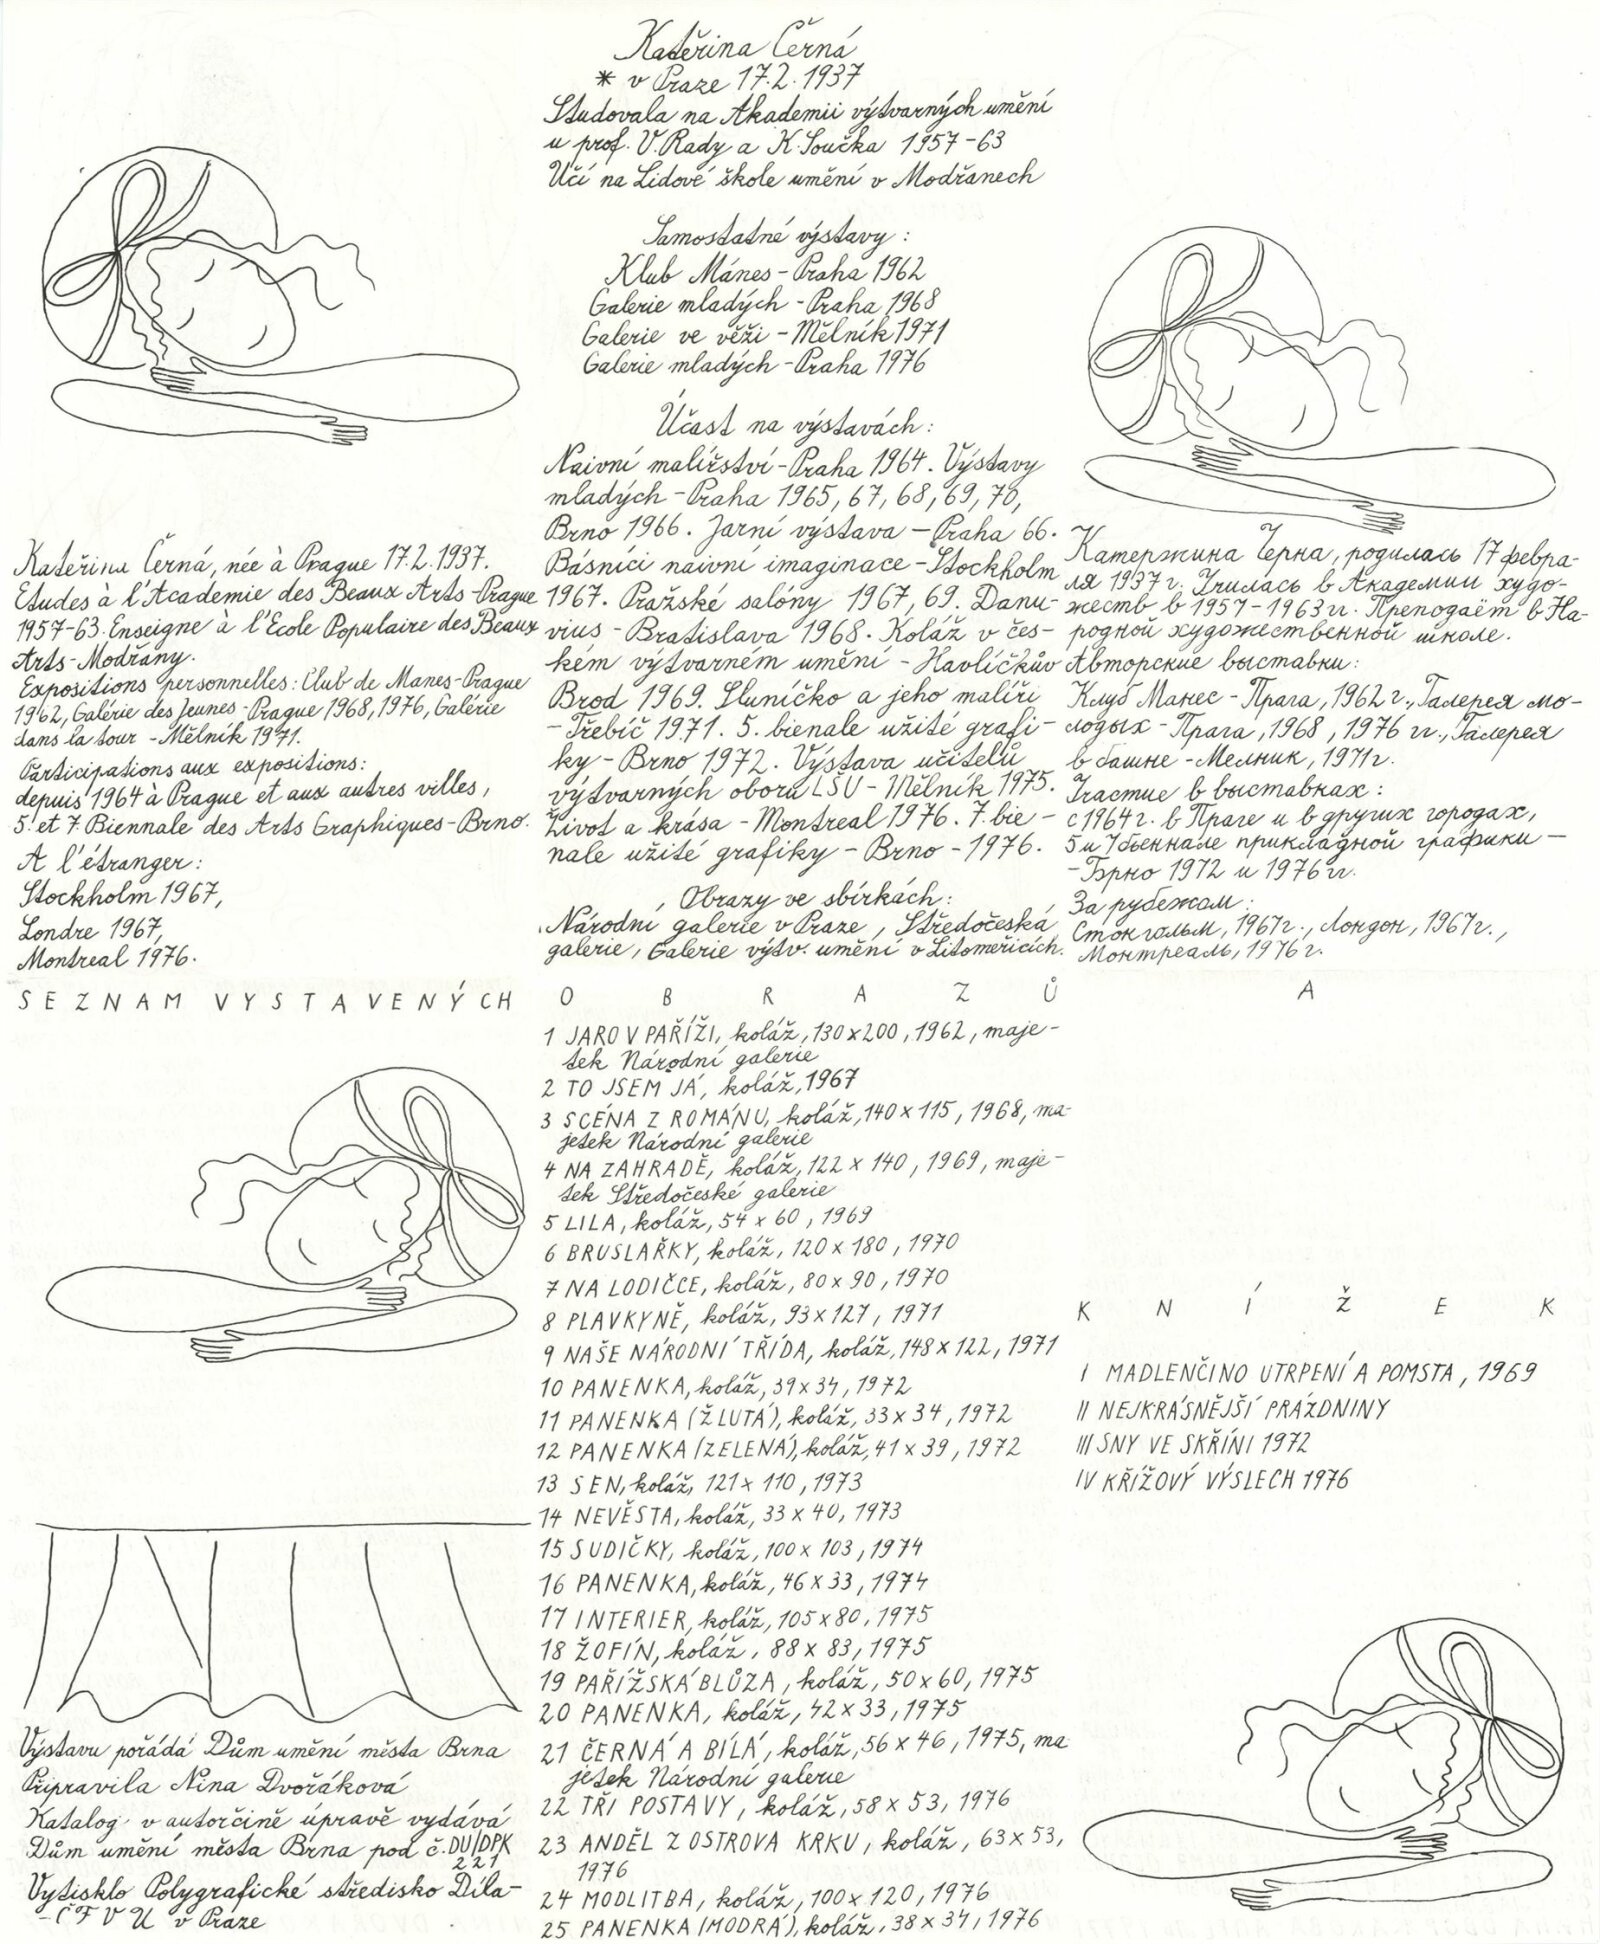 Kateřina Černá
* v Praze 17.2.1937
Studovala na Akademii výtvarných umění
u prof. V. Rady a K. Součka 1957-63
Učí na Lidové škole umění v Modřanech
Samostatné výstavy:
Klub Mánes - Praha 1962
Galerie mladých - Praha 1968
Galerie ve věži - Mělník 1971
Galerie mladých - Praha 1976
Účast na výstavách:
Naivní malířství - Praha 1964. Výstavy
mladých - Praha 1965, 67, 68, 69, 70,
Brno 1966. Jarní výstava - Praha 66.
Básníci naivní imaginace - Stockholm
1967. Pražské salóny 1967, 69. Danu-
vius - Bratislava 1968. Koláž v čes-
kém výtvarném umění - Havlíčkův
Brod 1969. Sluníčko a jeho malíři
- Třebíč 1971. 5. bienale užité grafi-
ky - Brno 1972. Výstava učitelů
výtvarných oborů LŠU - Mělník 1975.
Život a krása - Montreal 1976. 7. bie-
nale užité grafiky - Brno - 1976.
Obrazy ve sbírkách:
Národní galerie v Praze, Středočeská
galerie, Galerie výtv. umění v Litoměřicích.
Kateřina Černá, née à Prague 17.2.1937.
Etudes à l'Academie des Beaux Arts - Prague
1957-63. Enseigne à l'Ecole Populaire des Beaux
Arts - Modřany.
Expositions personnelles: Club de Manes - Prague
1962, Galérie des Jeunes - Prague 1968, 1976, Galérie
dans la tour - Mělník 1971.
Participations aux expositions:
depuis 1964 à Prague et aux autres villes,
5. et 7. Biennale des Arts Graphiques - Brno.
A l'étranger:
Stockholm 1967,
Londre 1967,
Montreal 1976.
Катержина Черна, родилась 17 февра-
ля 1937 г. Училась в Академии худо-
жеств в 1957-1963 гг. Преподаёт в На-
родной художественной школе.
Авторские выставки:
Клуб Манес - Прага, 1962 г., Галерея мо-
лодых - Прага, 1968, 1976 гг., Галерея
в башне - Мелник, 1971 г.
Участие в выставках:
с 1964 г. в Праге и в других городах,
5 и 7 бьеннале прикладной графики -
- Брно 1972 и 1976 гг.
За рубежом:
Стокгольм, 1967 г., Лондон, 1967 г.,
Монтреаль, 1976 г.
SEZNAM VYSTAVENÝCH OBRAZŮ A
1 JARO V PAŘÍŽI, koláž, 130x200, 1962, maje-
tek Národní galerie
2 TO JSEM JÁ, koláž, 1967
3 SCÉNA Z ROMÁNU, koláž, 140 x 115, 1968, ma-
jetek Národní galerie
4 NA ZAHRADĚ, koláž, 122 x 140, 1969, maje-
tek Středočeské galerie
5 LILA, koláž, 54 x 60, 1969
6 BRUSLAŘKY, koláž, 120 x 180, 1970
7 NA LODIČCE, koláž, 80 x 90, 1970
8 PLAVKYNĚ, koláž, 93 x 127, 1971
9 NAŠE NÁRODNÍ TŘÍDA, koláž, 148 x 122, 1971
10 PANENKA, koláž, 39 x 34, 1972
11 PANENKA (ŽLUTÁ), koláž, 33 x 34, 1972
12 PANENKA (ZELENÁ), koláž, 41 x 39, 1972
13 SEN, koláž, 121 x 110, 1973
14 NEVĚSTA, koláž, 33 x 40, 1973
15 SUDIČKY, koláž, 100 x 103, 1974
16 PANENKA, koláž, 46 x 33, 1974
17 INTERIER, koláž, 105 x 80, 1975
18 ŽOFÍN, koláž, 88 x 83, 1975
19 PAŘÍŽSKÁ BLŮZA, koláž, 50 x 60, 1975
20 PANENKA, koláž, 42 x 33, 1975
21 ČERNÁ A BÍLÁ, koláž, 56 x 46, 1975, ma
jetek Národní galerie
22 TŘI POSTAVY, koláž, 58 x 53, 1976
23 ANDĚL Z OSTROVA KRKU, koláž, 63 x 53,
1976
24 MODLITBA, koláž, 100 x 120, 1976
25 PANENKA (MODRÁ), koláž, 38 x 34, 1976
KNÍŽEK
I MADLENČINO UTRPENÍ A POMSTA, 1969
II NEJKRÁSNĚJŠÍ PRÁZDNINY
III SNY VE SKŘÍNI 1972
IV KŘÍŽOVÝ VÝSLECH 1976
Výstavu pořádá Dům umění města Brna
Připravila Nina Dvořáková
Katalog v autorčině úpravě vydává
Dům umění města Brna pod č. DU/DPK
221
Vytisklo Polygrafické středisko Díla-
- ČFVU v Praze